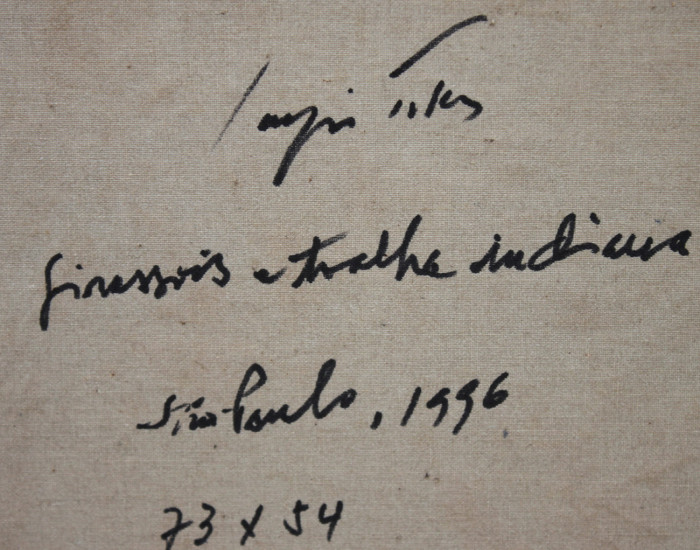 Girassois e toalha indiana
São Paulo, 1996
73 x 54